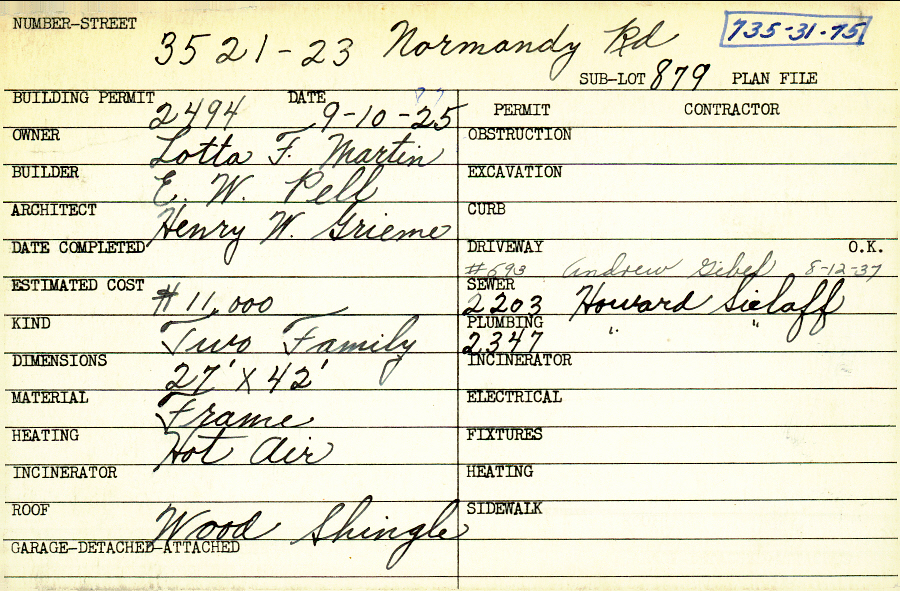 NUMBER-STREET 3521-23 Normandy Rd 735-31-75
SUB-LOT 879 PLAN FILE
BUILDING PERMIT 2494 DATE 9-10-25
PERMIT CONTRACTOR
OWNER Lotta F. Martin
OBSTRUCTION
BUILDER E. W. Pell
EXCAVATION
ARCHITECT Henry W. Grieme
CURB
DATE COMPLETED
DRIVEWAY O.K.
#693 Andrew Gibel 8-12-37
ESTIMATED COST $11,000
SEWER 2203 Howard Sielaff
KIND Two Family
PLUMBING 2347 " "
DIMENSIONS 27' X 42'
INCINERATOR
MATERIAL Frame
ELECTRICAL
HEATING Hot Air
FIXTURES
INCINERATOR
HEATING
ROOF Wood Shingle
SIDEWALK
GARAGE-DETACHED-ATTACHED